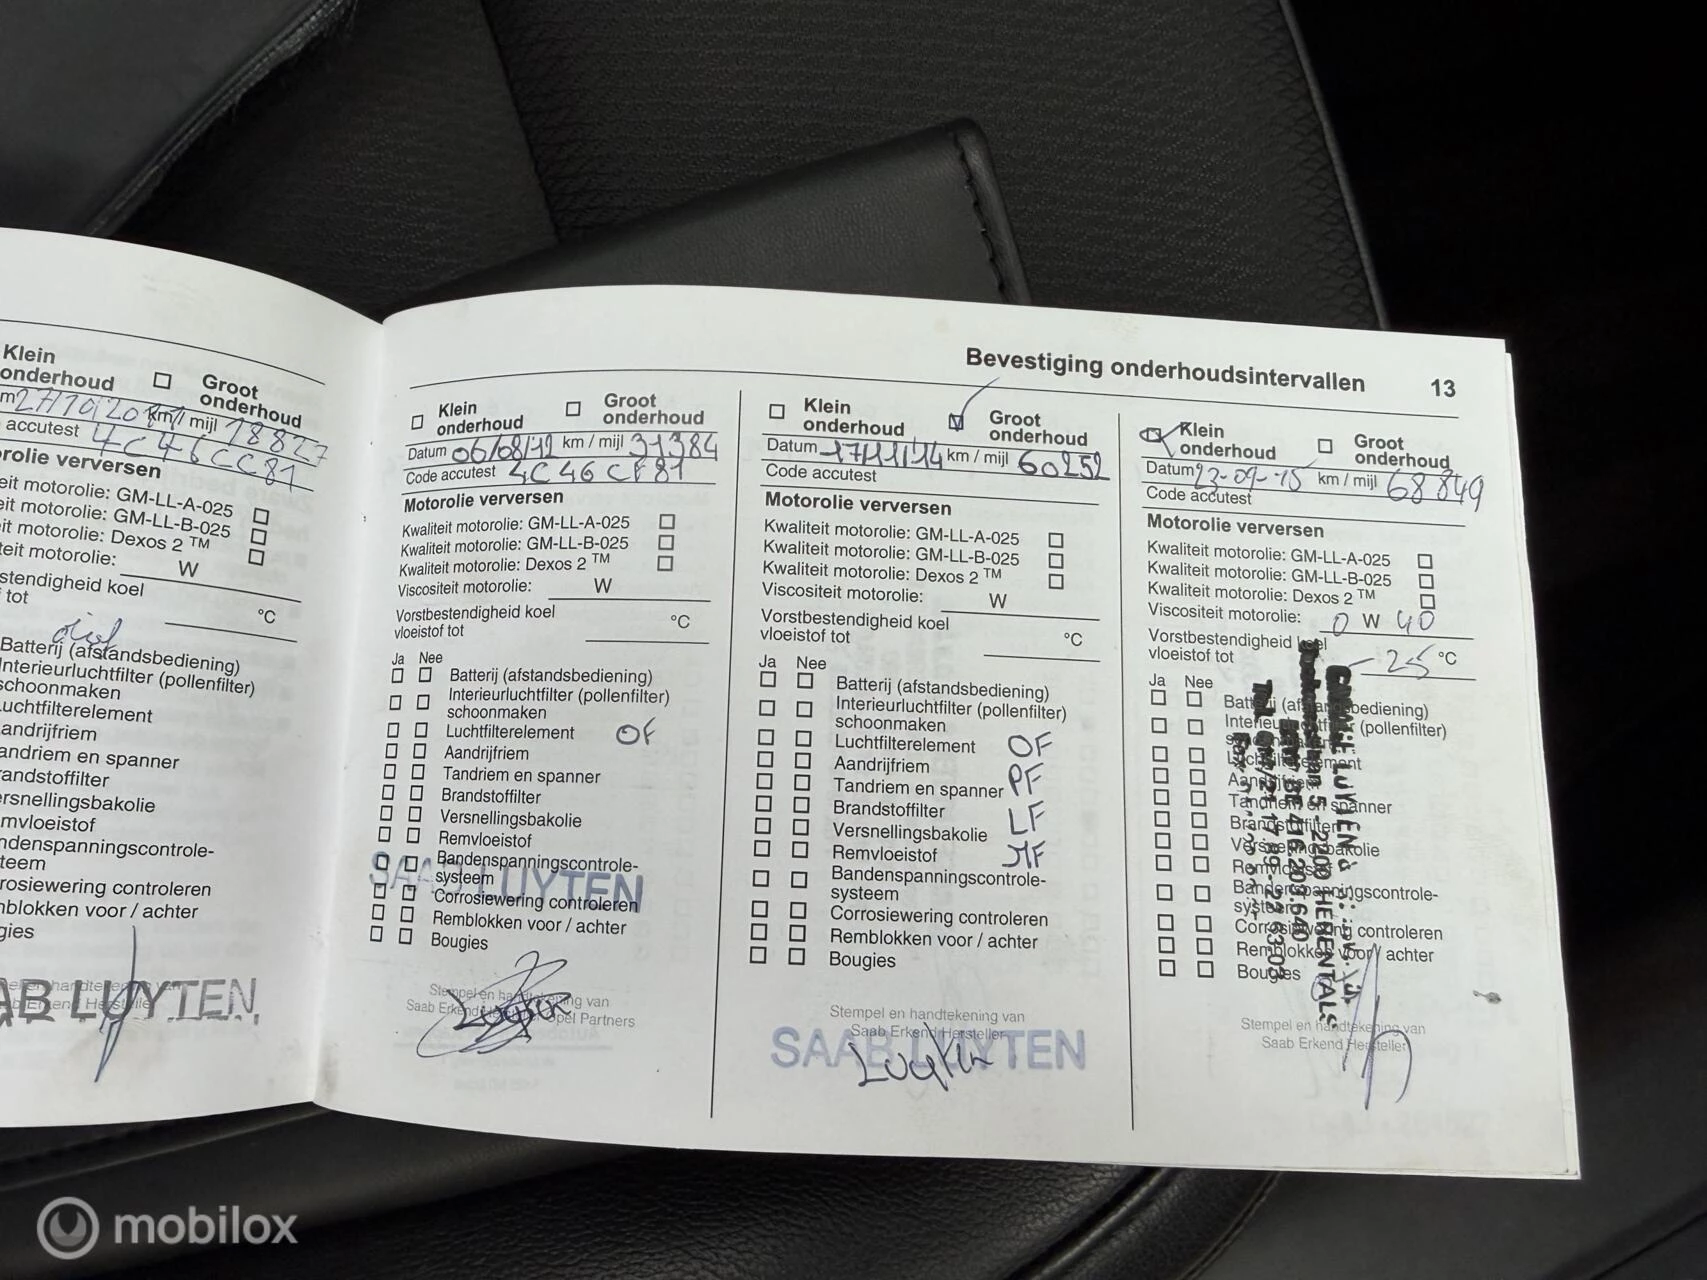 Klein
onderhoud
Groot
onderhoud
m 27/10/2011 km / mijl 18827
accutest 4C46CC81
orolie verversen
eit motorolie: GM-LL-A-025
it motorolie: GM-LL-B-025
it motorolie: Dexos 2 TM
teit motorolie:
W
stendigheid koel
f tot
°C
Batterij (afstandsbediening)
Interieurluchtfilter (pollenfilter)
schoonmaken
uchtfilterelement
aandrijfriem
andriem en spanner
randstoffilter
ersnellingsbakolie
mvloeistof
ndenspanningscontrole-
teem
rosiewering controleren
mblokken voor / achter
gies
AB LUYTEN
Bevestiging onderhoudsintervallen 13
Klein
onderhoud
Groot
onderhoud
Datum 06/08/12 km / mijl 31384
Code accutest 4C46CF81
Motorolie verversen
Kwaliteit motorolie: GM-LL-A-025
Kwaliteit motorolie: GM-LL-B-025
Kwaliteit motorolie: Dexos 2 TM
Viscositeit motorolie: W
Vorstbestendigheid koel
vloeistof tot °C
Ja Nee
Batterij (afstandsbediening)
Interieurluchtfilter (pollenfilter)
schoonmaken
Luchtfilterelement OF
Aandrijfriem
Tandriem en spanner
Brandstoffilter
Versnellingsbakolie
Remvloeistof
Bandenspanningscontrole-
systeem
SAAB LUYTEN
Corrosiewering controleren
Remblokken voor / achter
Bougies
Stempel en handtekening van
Saab Erkend Hersteller Opel Partners
Luyten
Klein
onderhoud
Groot
onderhoud
Datum 17/11/14 km / mijl 60252
Code accutest
Motorolie verversen
Kwaliteit motorolie: GM-LL-A-025
Kwaliteit motorolie: GM-LL-B-025
Kwaliteit motorolie: Dexos 2 TM
Viscositeit motorolie: W
Vorstbestendigheid koel
vloeistof tot °C
Ja Nee
Batterij (afstandsbediening)
Interieurluchtfilter (pollenfilter)
schoonmaken
Luchtfilterelement OF
Aandrijfriem
Tandriem en spanner PF
Brandstoffilter
Versnellingsbakolie LF
Remvloeistof
Bandenspanningscontrole-
systeem
Corrosiewering controleren
Remblokken voor / achter
Bougies
Stempel en handtekening van
Saab Erkend Hersteller
SAAB LUYTEN
Luyten
Klein
onderhoud
Groot
onderhoud
Datum 23-09-15 km / mijl 68849
Code accutest
Motorolie verversen
Kwaliteit motorolie: GM-LL-A-025
Kwaliteit motorolie: GM-LL-B-025
Kwaliteit motorolie: Dexos 2 TM
Viscositeit motorolie: 0 W 40
Vorstbestendigheid koel
vloeistof tot -25 °C
Ja Nee
Batterij (afstandsbediening)
Interieurluchtfilter (pollenfilter)
Luchtfilterelement
Aandrijfriem
Tandriem en spanner
Brandstoffilter
Versnellingsbakolie
Remvloeistof
Bandenspanningscontrole-
systeem
Corrosiewering controleren
Remblokken voor / achter
Bougies
Stempel en handtekening van
Saab Erkend Hersteller
LUYTEN
5 - 2200 HERENTALS
BE 416.203.640
mobilox